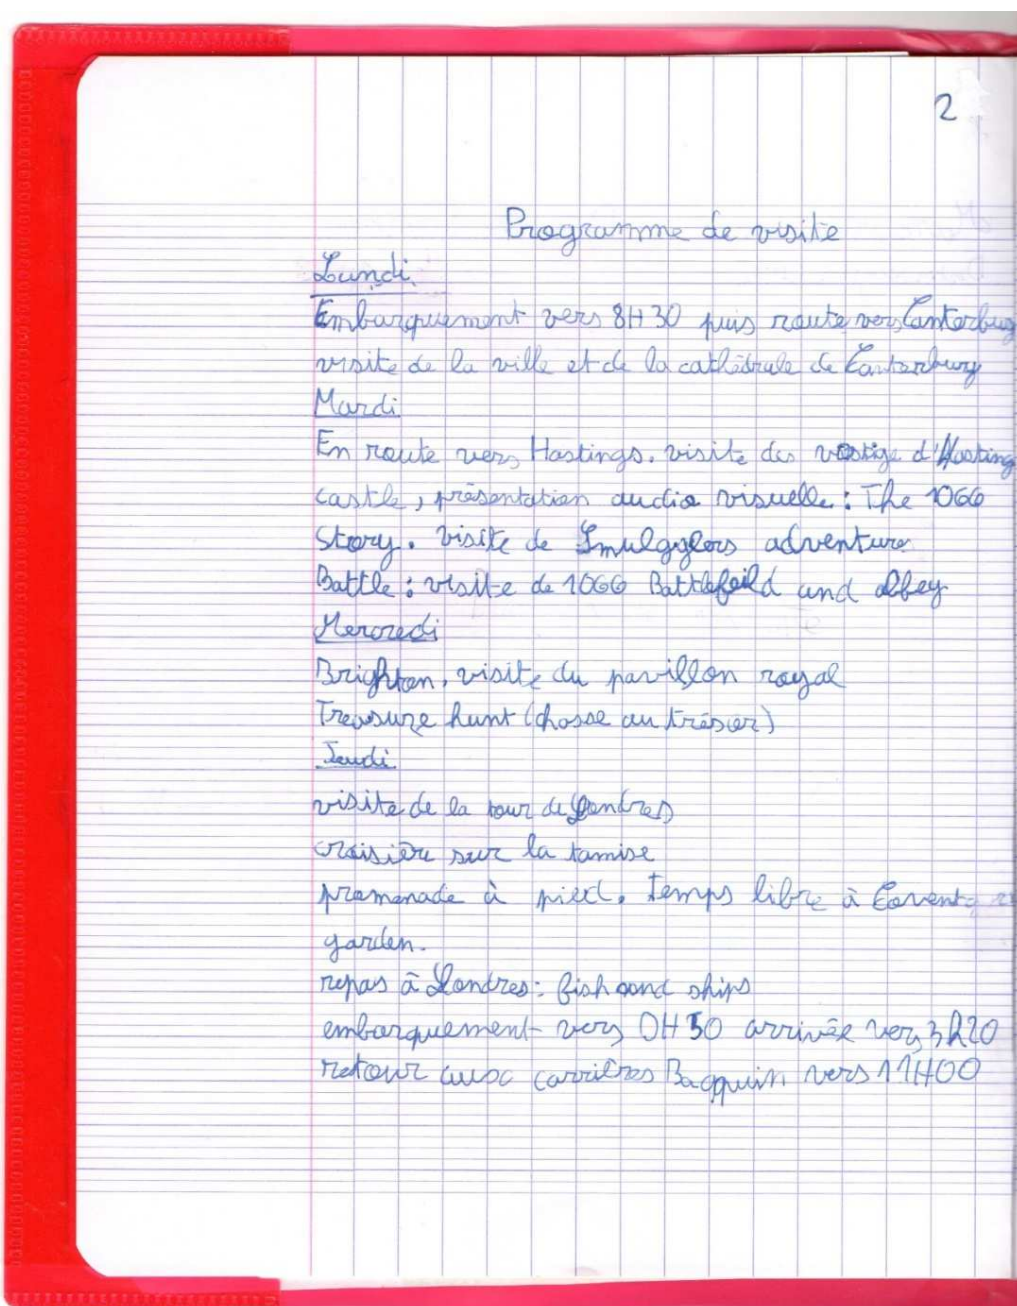 2
Programme de visite
Lundi
Embarquement vers 8H30 puis route vers Canterbury
visite de la ville et de la cathédrale de Canterbury
Mardi
En route vers Hastings. visite des vestige d'Hasting
castle, présentation audio visuelle : The 1066
Story. visite de Smulgglers adventure
Battle : visite de 1066 Battlefeild and abbey
Mercredi
Brighton, visite du pavillon royal
Treasure hunt (chasse au trésor)
Jeudi
visite de la tour de Londres
croisière sur la tamise
promenade à pied. temps libre à Covent
garden.
repas à Londres : fish and ships
embarquement vers 0H50 arrivée vers 3h20
retour aux carrières Bacquin vers 11H00